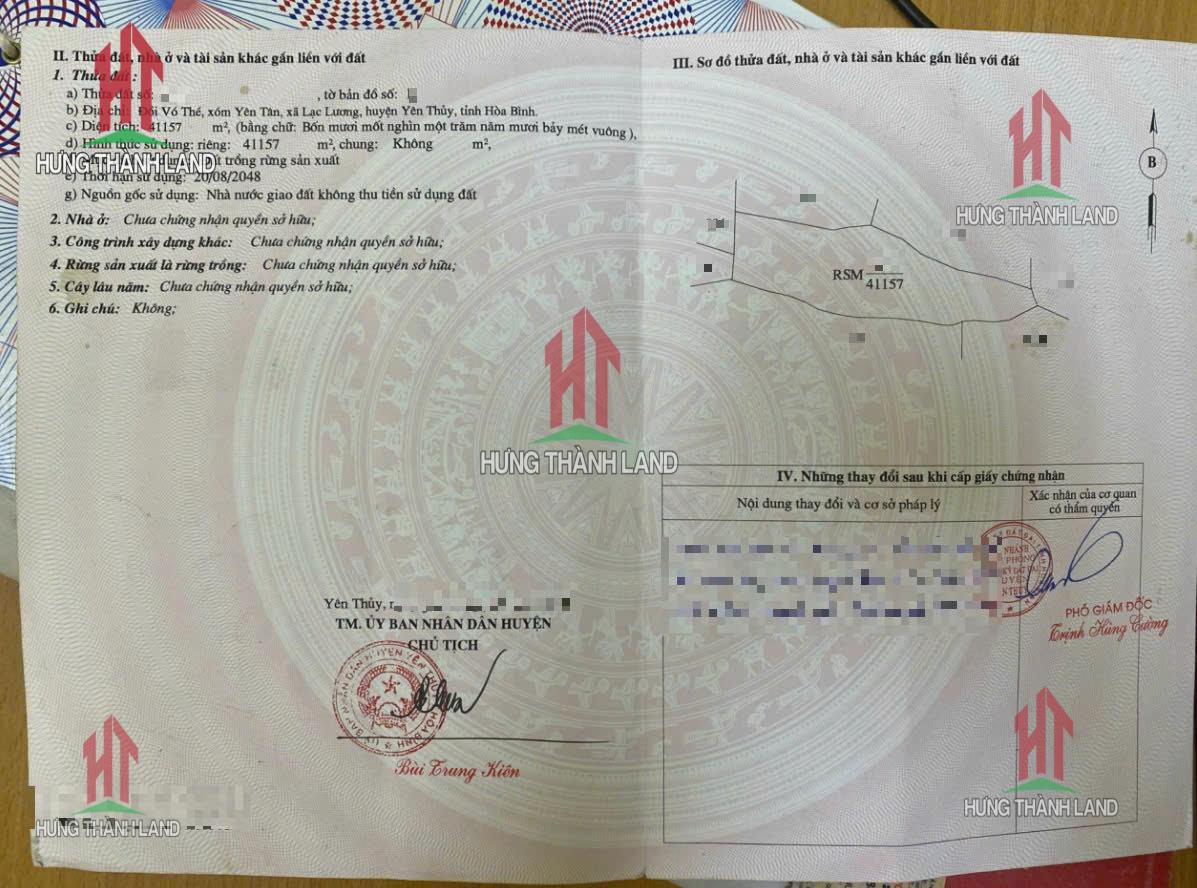 II. Thửa đất, nhà ở và tài sản khác gắn liền với đất
1. Thửa đất:
a) Thửa đất số: , tờ bản đồ số:
b) Địa chỉ: Đồi Vó Thề, xóm Yên Tân, xã Lạc Lương, huyện Yên Thủy, tỉnh Hòa Bình.
c) Diện tích: 41157 m², (bằng chữ: Bốn mươi mốt nghìn một trăm năm mươi bảy mét vuông ),
d) Hình thức sử dụng: riêng: 41157 m², chung: Không m²,
đất trồng rừng sản xuất
e) Thời hạn sử dụng: 20/08/2048
g) Nguồn gốc sử dụng: Nhà nước giao đất không thu tiền sử dụng đất
2. Nhà ở: Chưa chứng nhận quyền sở hữu;
3. Công trình xây dựng khác: Chưa chứng nhận quyền sở hữu;
4. Rừng sản xuất là rừng trồng: Chưa chứng nhận quyền sở hữu;
5. Cây lâu năm: Chưa chứng nhận quyền sở hữu;
6. Ghi chú: Không;
Yên Thủy,
TM. ỦY BAN NHÂN DÂN HUYỆN
CHỦ TỊCH
Bùi Trung Kiên
III. Sơ đồ thửa đất, nhà ở và tài sản khác gắn liền với đất
B
RSM
41157
IV. Những thay đổi sau khi cấp giấy chứng nhận
Nội dung thay đổi và cơ sở pháp lý
Xác nhận của cơ quan
có thẩm quyền
PHÓ GIÁM ĐỐC
Trịnh Hùng Cường
HƯNG THÀNH LAND
HƯNG THÀNH LAND
HƯNG THÀNH LAND
HƯNG THÀNH LAND
HƯNG THÀNH LAND